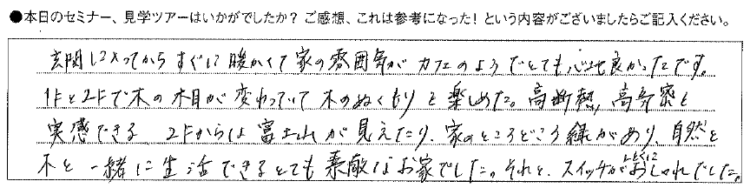 ●本日のセミナー、見学ツアーはいかがでしたか？ ご感想、これは参考になった！という内容がございましたらご記入ください。
玄関に入ってからすぐに暖かくて家の雰囲気がカフェのようでとても心地良かったです。
1Fと2Fで木の木目が変わっていて木のぬくもりを楽しめた。高断熱、高気密も
実感できる 2Fからは富士山が見えたり、家のところどころ緑があり、自然と
木と一緒に生活できるとても素敵なお家でした。それと、スイッチがとくにおしゃれでした。